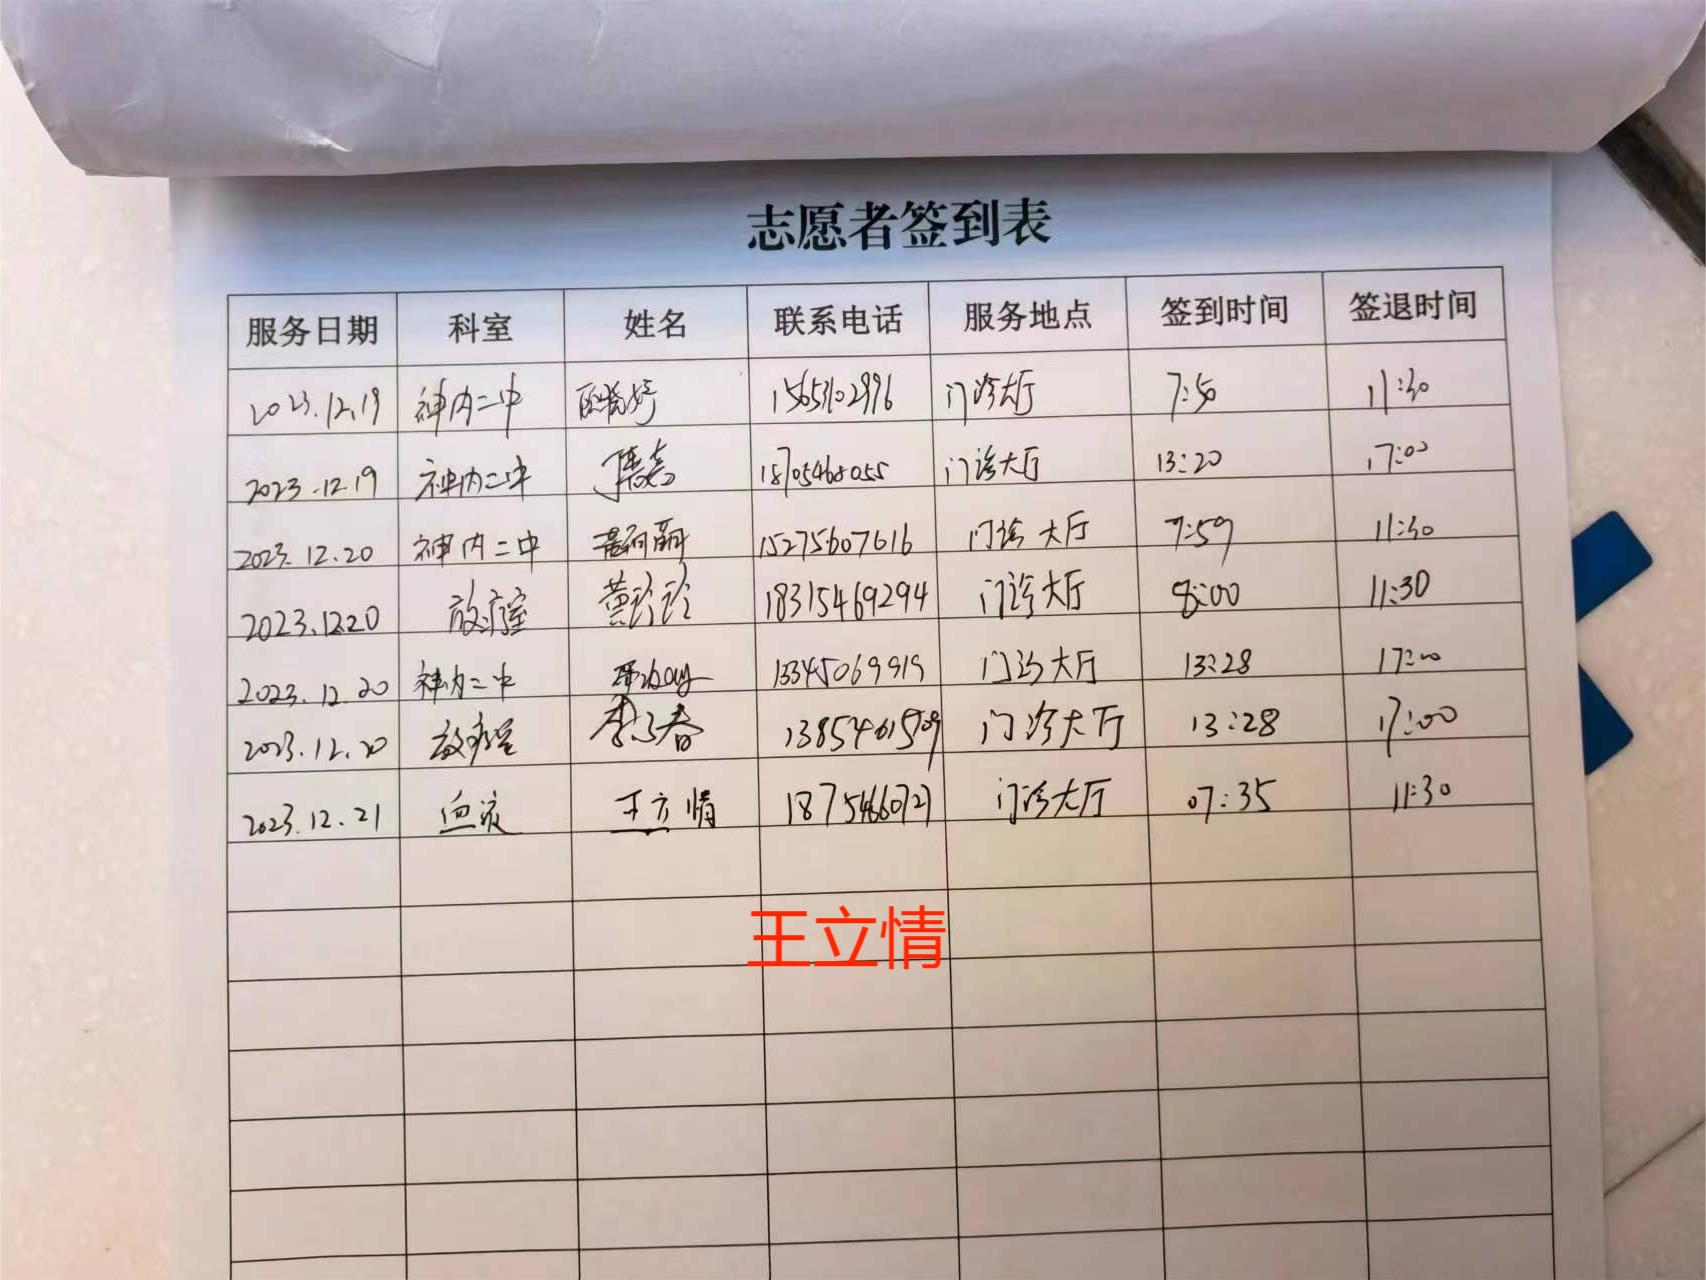 志愿者签到表
服务日期 科室 姓名 联系电话 服务地点 签到时间 签退时间
2023.12.19 神内二中 15653102996 门诊大厅 7:50 11:30
2023.12.19 神内二中 18705468055 门诊大厅 13:20 17:00
2023.12.20 神内二中 15275607616 门诊大厅 7:59 11:30
2023.12.20 放疗室 黄玲玲 18315469294 门诊大厅 8:00 11:30
2023.12.20 神内二中 13345069919 门诊大厅 13:28 17:00
2023.12.20 放疗室 13854615709 门诊大厅 13:28 17:00
2023.12.21 血液 王立情 18754660727 门诊大厅 07:35 11:30
王立情